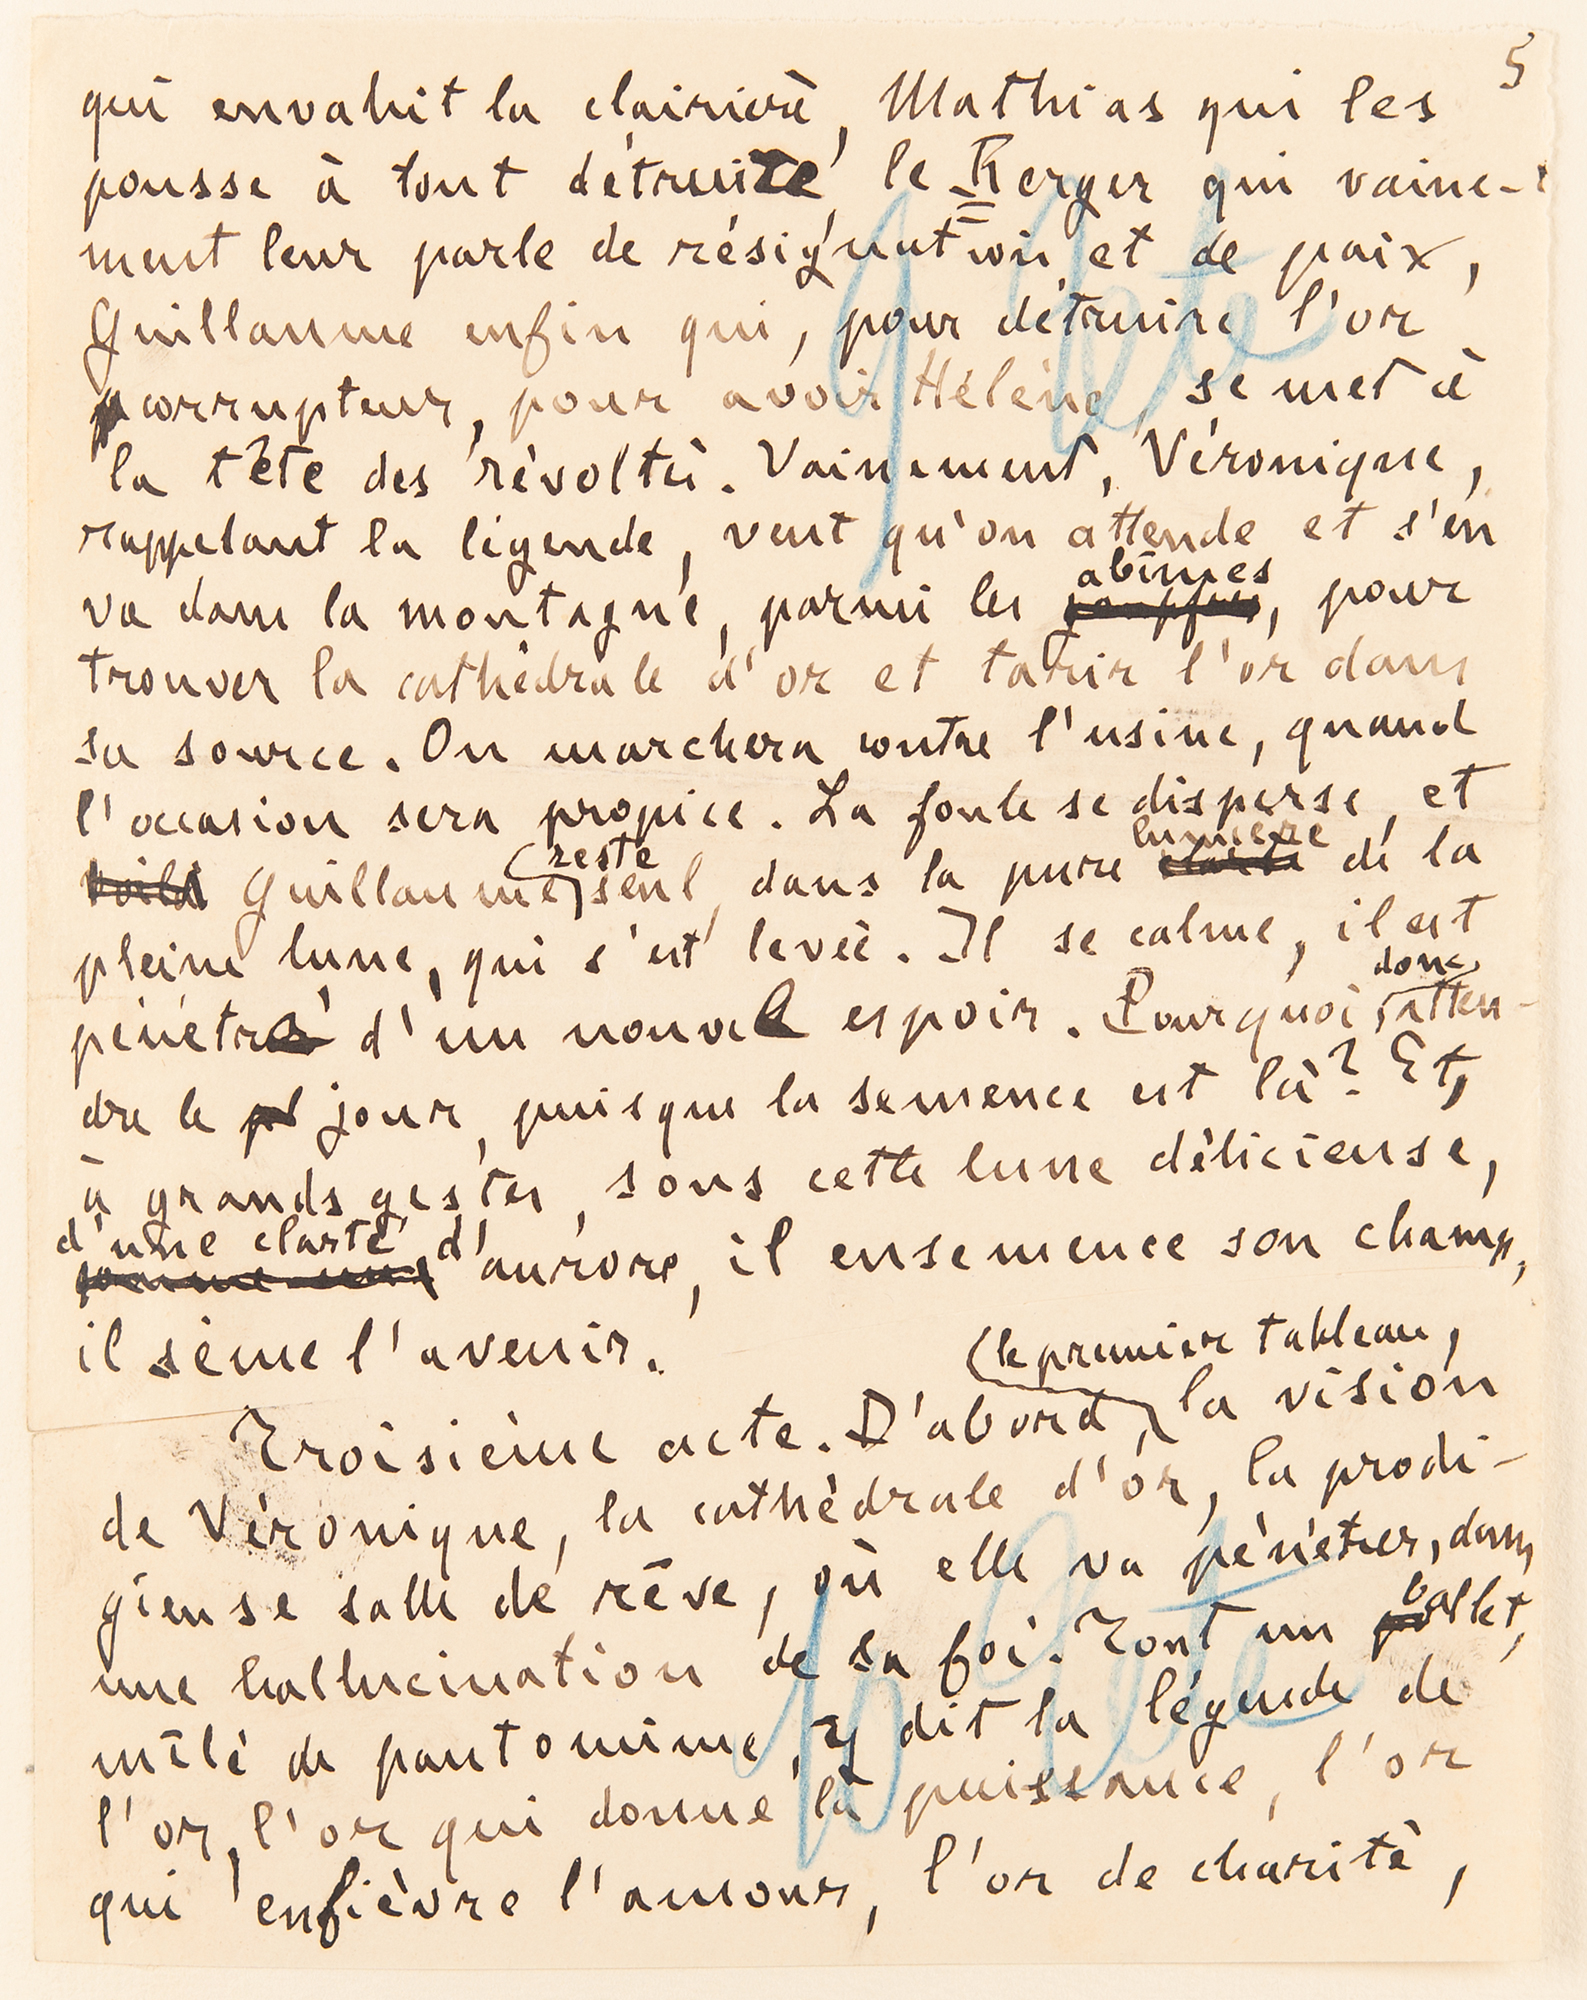 5
qui envahit la clairière, Mathias qui les
pousse à tout détruire, le Berger qui vaine-
ment leur parle de résignation et de paix,
Guillaume enfin qui, pour détruire l'or
corrupteur, pour avoir Hélène, se met à
la tête des révoltés. Vainement, Véronique,
rappelant la légende, veut qu'on attende et s'en
va dans la montagne, parmi les abîmes, pour
trouver la cathédrale d'or et tarir l'or dans
sa source. On marchera contre l'usine, quand
l'occasion sera propice. La foule se disperse, et
voilà Guillaume reste seul, dans la pure lumière de la
pleine lune, qui s'est levée. Il se calme, il est
pénétré d'un nouvel espoir. Pourquoi donc atten-
dre le jour, puisque la semence est là? Et,
à grands gestes, sous cette lune délicieuse,
d'une clarté d'aurore, il ensemence son champ,
il sème l'avenir.
Troisième acte. D'abord, le premier tableau, la vision
de Véronique, la cathédrale d'or, la prodi-
gieuse salle de rêve, où elle va pénétrer, dans
une hallucination de sa foi. Tout un ballet,
mêlé de pantomime, y dit la légende de
l'or, l'or qui donne la puissance, l'or
qui enfièvre l'amour, l'or de charité,